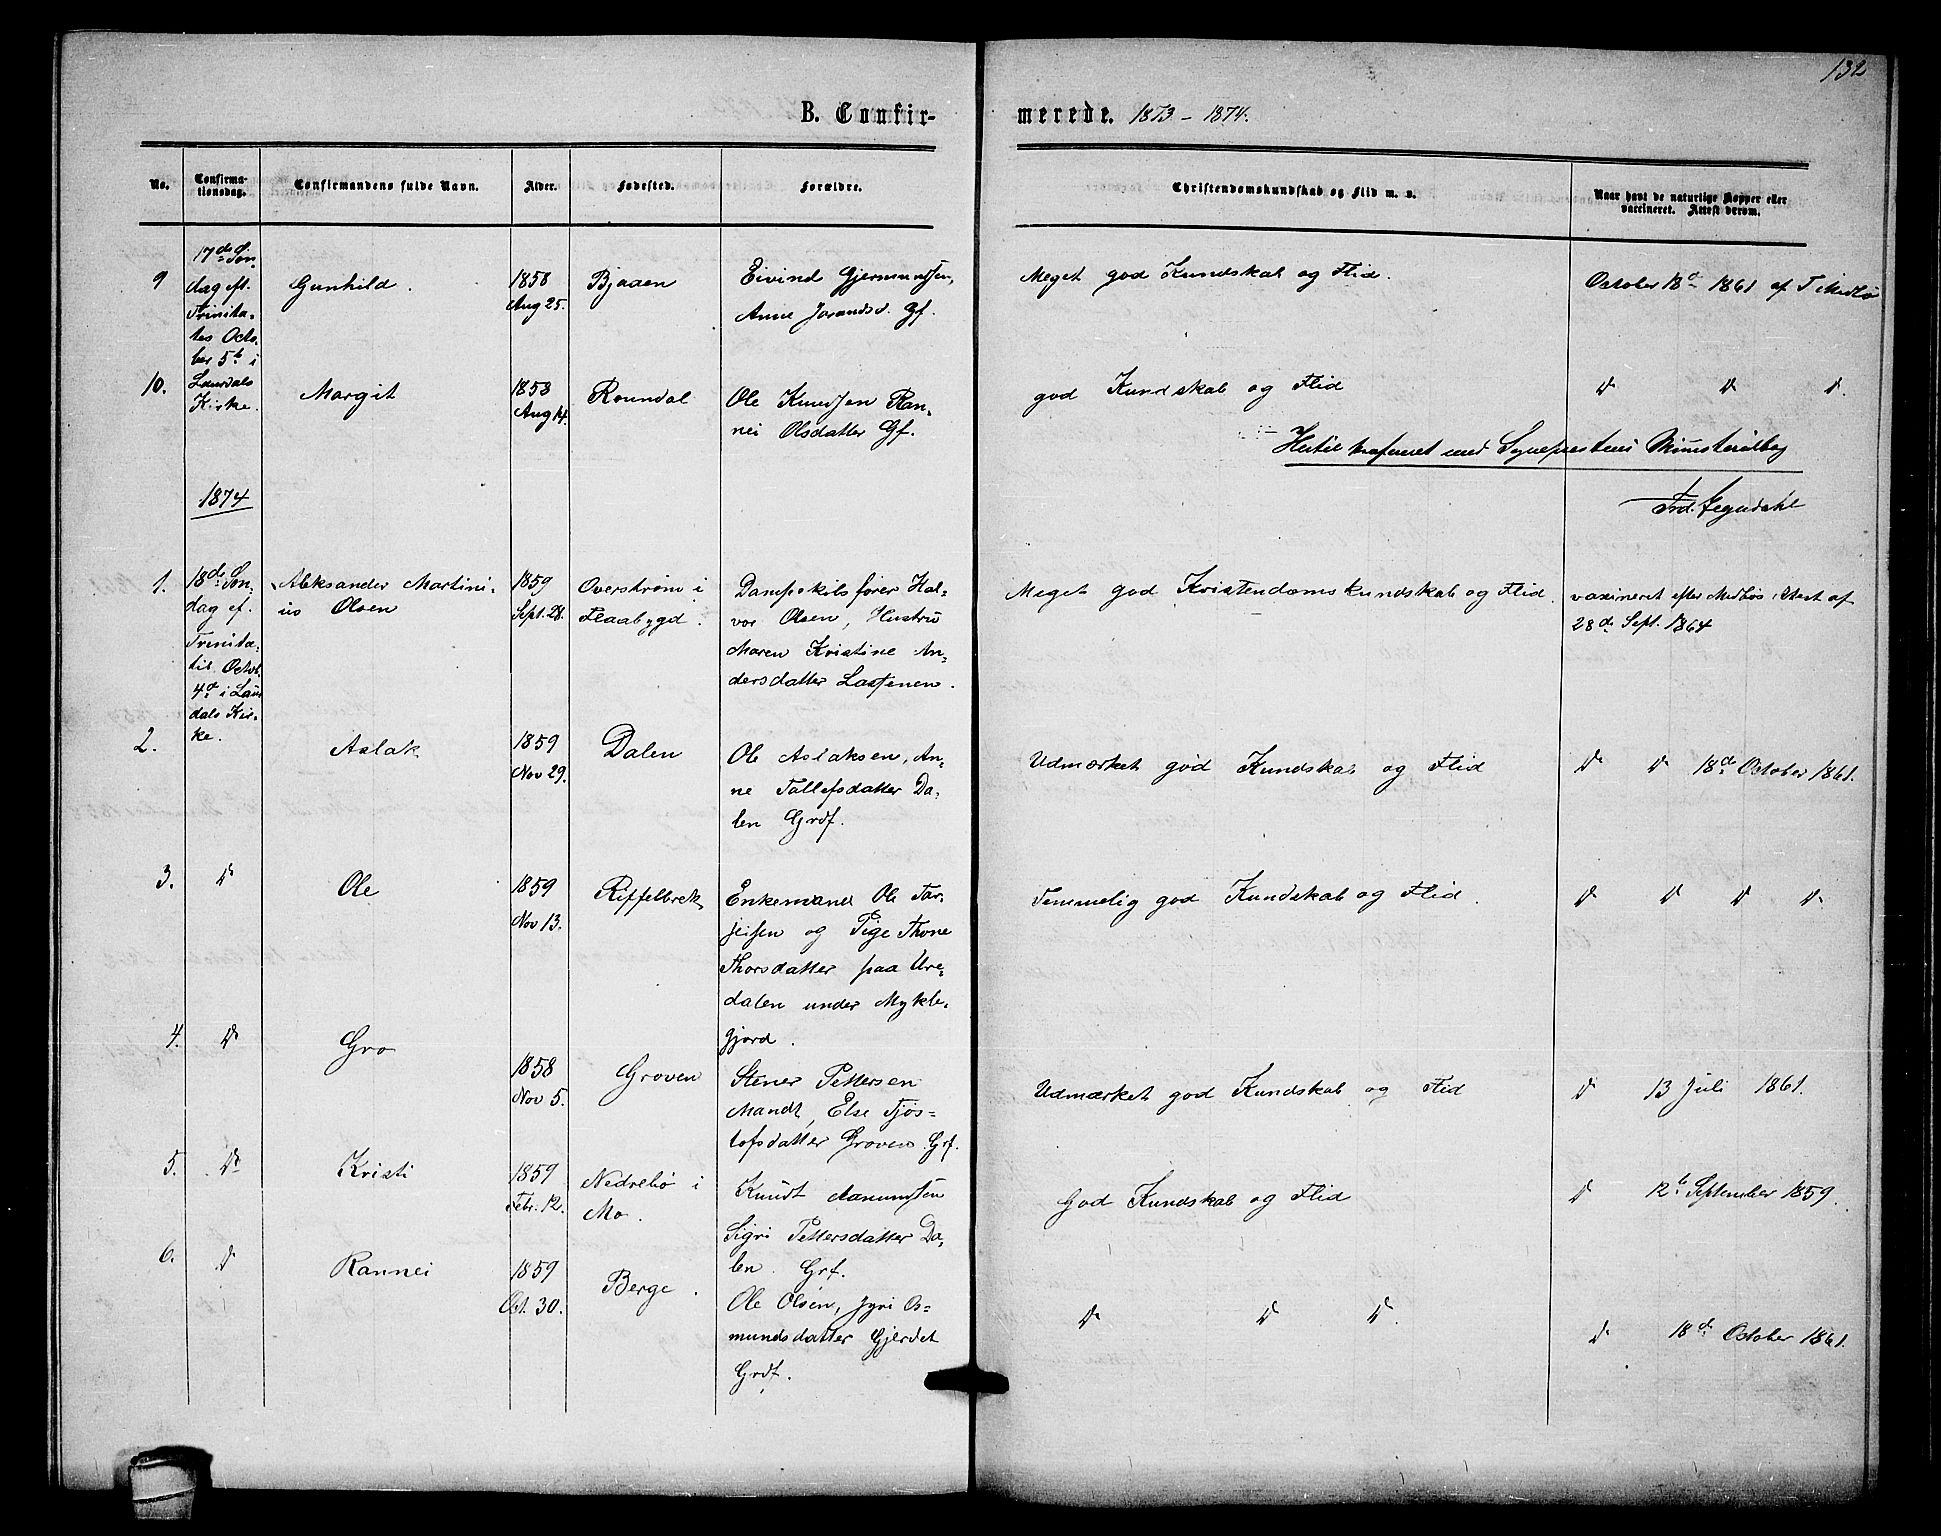 132
B. Confir-
merede. 1873 - 1874.
No.
Confirma-
tionsdag.
Confirmandens fulde Navn.
Alder.
Fødested.
Forældre.
Christendomskundskab og Flid m. v.
Naar havt de naturlige Kopper eller
vaccineret. Attest derom.
9
17de Søn-
dag eft.
Trinita-
tes Octo-
ber 5t i
Laurdals
Kirke.
Gunhild.
1858
Aug 25.
Bjaaen
Eivind Gjermundsen,
Anne Jorandsd. Gf.
Meget god Kundskab og Flid.
October 18d 1861 af T Midbø
10.
Margit
1858
Aug 14.
Roundal
Ole Knudsen Ran-
nei Olsdatter Gf.
god Kundskab og Flid
D D D.
Hertil confereret med Sognepræstens Ministerialbog
1874
1.
18de Søn-
dag ef.
Trinita-
tis Octob.
4d i Laur
dals Kir-
ke.
Aleksander Martini-
us Olsen
1859
Sept. 28.
Overstrøm i
Flaabygd.
Dampskibsfører Hal-
vor Olsen, Hustru
Maren Kristine An-
dersdatter Lastenen.
Meget god Kristendomskundskab og Flid.
vaxineret efter Midbøs Attest af
28de Sept. 1864
2.
Aslak
1859
Nov 29.
Dalen
Ole Aslaksen, An-
ne Tallefsdatter Da-
len Grdf.
Udmærket god Kundskab og Flid
D D 18de October 1861.
3.
D
Ole
1859
Nov 13.
Riffelbrek
Enkemand Ole Tar-
jeisen og Pige Thone
Thorsdatter paa Ure-
dalen under Mykle-
gjord.
Temmelig god Kundskab og Flid.
D D D D
4.
D
Gro
1858
Nov 5.
Groven
Stener Pettersen
Mandt, Else Tjøs-
tofsdatter Groven Grf.
Udmærket god Kundskab og Flid
D 13 Juli 1861.
5.
D
Kristi
1859
Febr. 12.
Nedrebø i
Mo.
Knudt Aanundsen
Sigri Pettersdatter Da-
len. Grf.
God Kundskab og Flid
D 12te September 1859.
6.
D
Rannei
1859
Oct. 30.
Berge.
Ole Olsen, Jyri Os-
mundsdatter Gjerdet
Grdf.
D D D.
D 18de October 1861.